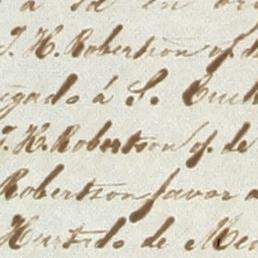 á 
J. H. Robertson of. d
egado á S. Cuell
J. H. Robertson of. de
Robertson favor a
Hurtado de Men